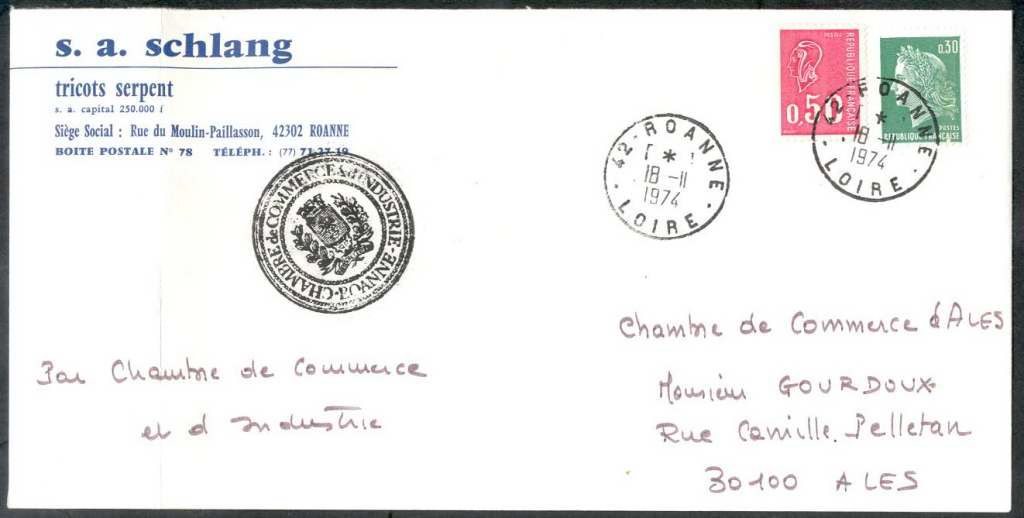 s. a. schlang
tricots serpent
s. a. capital 250.000 f
Siège Social : Rue du Moulin-Paillasson, 42302 ROANNE
BOITE POSTALE N° 78 TÉLÉPH. : (77) 71-27-19
CHAMBRE de COMMERCE & d'INDUSTRIE - ROANNE -
REPUBLIQUE FRANÇAISE
0,50
0,30
POSTES
REPUBLIQUE FRANÇAISE
42 - ROANNE
*
18 -11
1974
LOIRE
42 - ROANNE
*
18 -11
1974
LOIRE
Par Chambre de Commerce
et d Industrie
Chambre de Commerce d'ALES
Monsieur GOURDOUX
Rue Camille Pelletan
30100 ALES